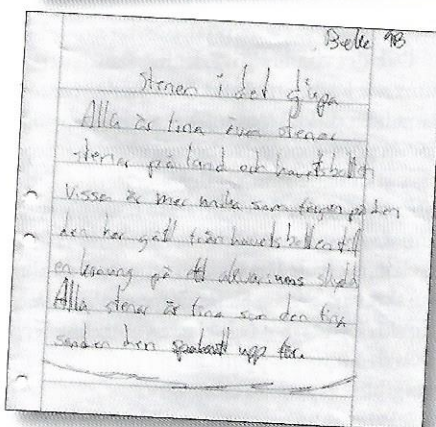 9B
stenen i det djupa
Alla är fina även stenar
stenar på land och havetsbotten
Vissa är mer unika som färgen på den
den har gått från havetsbotten till
en på ett akvariums
Alla stenar är fina som den fina
sanden den upp för.